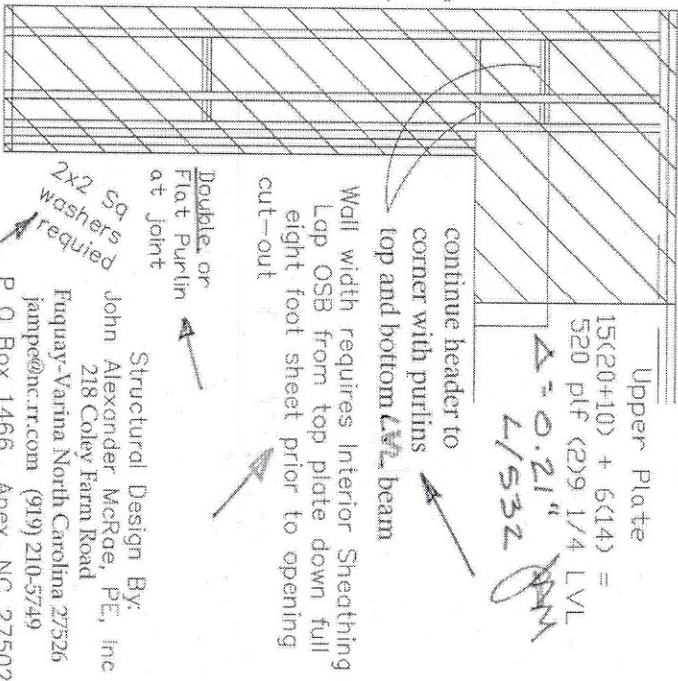 Upper Plate
15(20+10) + 6(14) =
520 plf (2)9 1/4 LVL
Δ = 0.21"
L/532
continue header to
corner with purlins
top and bottom LVL beam
Wall width requires Interior Sheathing
Lap OSB from top plate down full
eight foot sheet prior to opening
cut-out
Double or
Flat Purlin
at joint
2x2 Sq
washers
requied
Structural Design By:
John Alexander McRae, PE, Inc
218 Coley Farm Road
Fuquay-Varina North Carolina 27526
jampe@nc.rr.com (919) 210-5749
P O Box 1466 Apex NC 27502